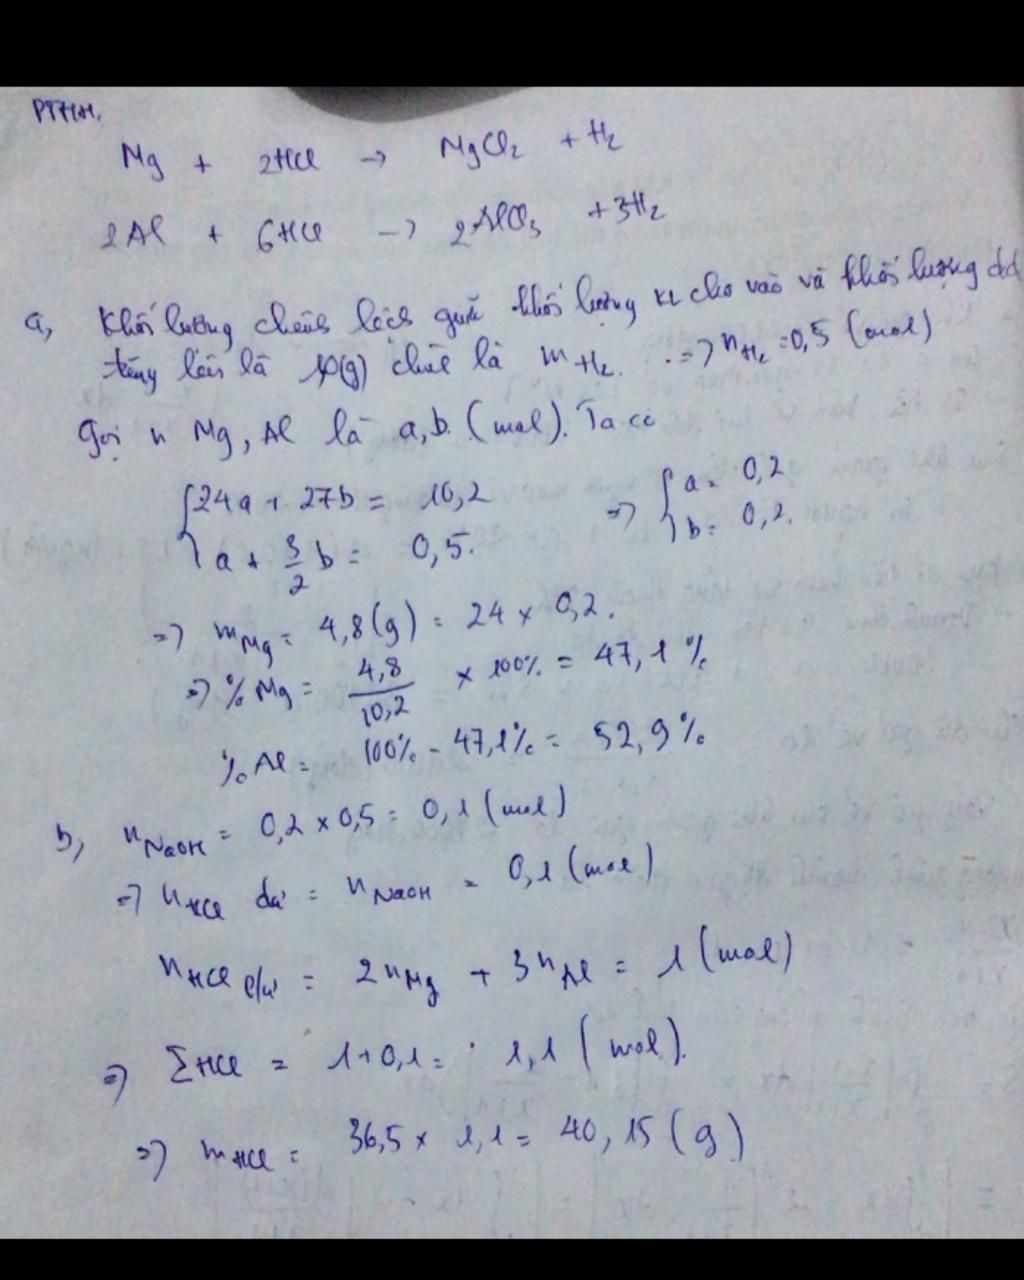 PTHH.
Mg + 2HCl → MgCl2 + H2
2Al + 6HCl → 2AlCl3 + 3H2
a, Khối lượng chênh lệch giữa khối lượng KL cho vào và khối lượng dd
tăng lên là (g) chính là mH2. => nH2 = 0,5 (mol)
gọi n Mg, Al là a, b (mol). Ta có
{ 24a + 27b = 10,2 => { a = 0,2
{ a + 3/2 b = 0,5. { b = 0,2.
=> mMg = 4,8(g) = 24 x 0,2.
=> % Mg = 4,8/10,2 x 100% = 47,1 %
% Al = 100% - 47,1% = 52,9 %
b, nNaOH = 0,2 x 0,5 = 0,1 (mol)
=> nHCl dư = nNaOH = 0,1 (mol)
nHCl p/ư = 2nMg + 3nAl = 1 (mol)
=> ΣHCl = 1+0,1 = 1,1 (mol).
=> mHCl = 36,5 x 1,1 = 40,15 (g)